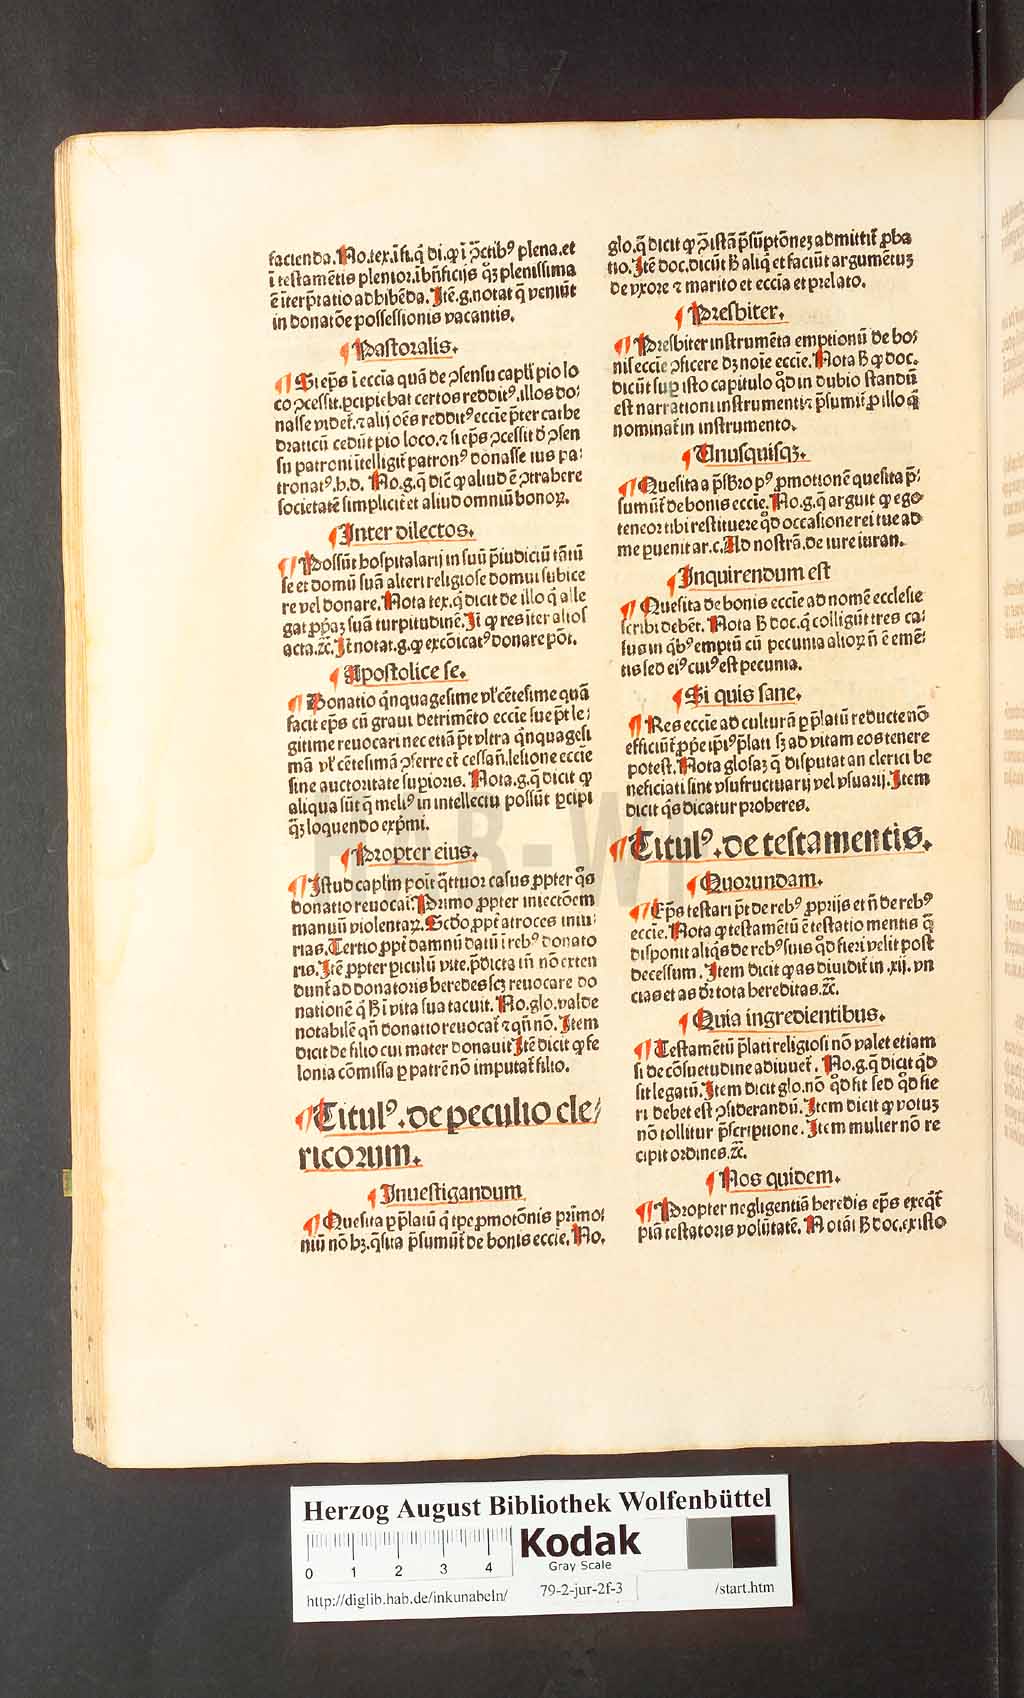 facienda. No. tex. ī fi. q̄ di. ꝙ ī ꝯctibꝰ plena. et
ī testamētis plenior. ī bn̄ficijs qʒ plenissima
ē īterp̄tatio adhibēda. Itē. g. notat q̄ veniūt
in donatōe possessionis vacantis.
¶ Pastoralis.
¶ Si ep̄s ī eccīa quā de ꝯsensu capl̄i pio lo
co ꝯcessit. ꝑcipiebat certos redditꝰ. illos do⸗
nasse videt̄. ⁊ alij oēs redditꝰ eccīe p̄ter cathe
draticū cedūt pio loco. ⁊ si ep̄s ꝯcessit d̄ ꝯsen
su patroni ītelligit̄ patronꝰ donasse ius pa⸗
tronatꝰ. h. d. No. g. q̄ dic̄ ꝙ aliud ē ꝯtrahere
societatē simplicit̄ et aliud omniū bonoꝝ.
¶ Inter dilectos.
¶ Possūt hospitalarij in suū p̄iudiciū tātū
se et domū suā alteri religiose domui subice
re vel donare. Nota tex. q̄ dicit de illo q̄ alle
gat ꝓpaʒ suā turpitudinē. Jt̄ ꝙ res īter alios
acta. ⁊c̄. Jt̄ notat. g. ꝙ excōicatꝰ donare pōt.
¶ Apostolice se.
¶ Donatio q̄nquagesime vl̓ cētesime quā
facit ep̄s cū graui detrimēto eccīe sue p̄t le⸗
gitime reuocari nec etiā p̄t vltra q̄nquagesi
mā vl̓ cētesimā ꝯferre et̄ cessan̄. lesione eccīe
sine auctoritate suꝑioris. Nota. g. q̄ dicit ꝙ
aliqua sūt q̄ meliꝰ in intellectu possūt ꝑcipi
qʒ loquendo exp̄mi.
¶ Propter eius.
¶ Istud caplm̄ poīt q̄ttuor casus ꝓpter q̄s
donatio reuocat̄. Primo ꝓpter iniectōem
manuū violentaꝝ. Scdo ꝓpt̄ atroces iniu⸗
rias. Tertio ꝓpt̄ damnū datū ī rebꝰ donato
ris. Itē ꝓpter ꝑiculū vite. p̄dicta tn̄ nō exten
dunt̄ ad donatoris heredes sʒ reuocare do
nationē q̄ hᷤ ī vita sua tacuit. No. glo. valde
notabilē qn̄ donatio reuocat̄ ⁊ qn̄ nō. Item
dicit de filio cui mater donauit Itē dicit ꝙ fe
lonia cōmissa ꝑ patrē nō imputat̄ filio.
¶ Titulꝰ. de peculio cle/
ricorum.
¶ Inuestigandum
¶ Quesita ꝑ p̄latū q̄ tp̄e ꝓmotōnis p̄rimo⸗
niū nō hʒ. q̄sita p̄sumūt̄ de bonis eccīe. No.
glo. q̄ dicit ꝙ ꝯ istā p̄sūptōneʒ admittit̄ ꝓba
tio. Itē doc. dicūt hᷤ aliq̄ et faciūt argumētuʒ
de vxore ⁊ marito et eccīa et prelato.
¶ Presbiter.
¶ Presbiter instrumēta emptionū de bo⸗
nis eccīe ꝯficere dʒ noīe eccīe. Nota hᷤ ꝙ doc.
dicūt sup isto capitulo qd̄ in dubio standū
est narrationi instrumenti ⁊ p̄sumit̄ ꝓ illo q̄
nominat̄ in instrumento.
¶ Unusquisqʒ.
¶ Quesita a p̄sbro pꝰ ꝓmotionē quesita p̄⸗
sumūt̄ de bonis eccīe. No. g. q̄ arguit ꝙ ego
teneor tibi restituere qd̄ occasione rei tue ad
me ꝑuenit ar. c. Ad nostrā. de iure iuran.
¶ Inquirendum est
¶ Quesita de bonis eccīe ad nomē ecclesie
scribi debēt. Nota hᷤ doc. q̄ colligūt tres ca⸗
sus in q̄bꝰ emptū cū pecunia alioꝝ n̄ ē emē⸗
tis sed eiꝰ cuiꝰ est pecunia.
¶ Si quis sane.
¶ Res eccīe ad culturā ꝑ p̄latū reducte nō
efficiūt̄ ꝓp̄e ip̄iꝰ p̄lati sʒ ad vitam eos tenere
potest. Nota glosaʒ q̄ disputat an clerici be
neficiati sint vsufructuarij vel vsuarij. Item
dicit q̄s dicatur proberes.
¶ Titulꝰ. de testamentis.
¶ Quorundam.
¶ Ep̄s testari p̄t de rebꝰ ꝓprijs et n̄ de rebꝰ
eccīe. Nota ꝙ testamētū ē testatio mentis q̄
disponit aliq̄s de rebꝰ suis qd̄ fieri velit post
decessum. Item dicit ꝙ as diuidit̄ in .xij. vn
cias et as dr̄ tota hereditas. ⁊c̄.
¶ Quia ingredientibus.
¶ Testamētū p̄lati religiosi nō valet etiam
si de cōsuetudine adiuuet̄. No. g. q̄ dicit qd̄
sit legatū. Item dicit glo. nō qd̄ fit sed qd̄ fie
ri debet est ꝯsiderandū. Item dicit ꝙ votuʒ
nō tollitur p̄scriptione. Item mulier nō re
cipit ordines. ⁊c̄.
¶ Nos quidem.
¶ Propter negligentiā heredis ep̄s exeq̄t̄
piā testatoris volūtatē. Notāt hᷤ doc. ex isto
Herzog August Bibliothek Wolfenbüttel
0 1 2 3 4
Kodak
Gray Scale
http://diglib.hab.de/inkunabeln/ 79-2-jur-2f-3 /start.htm